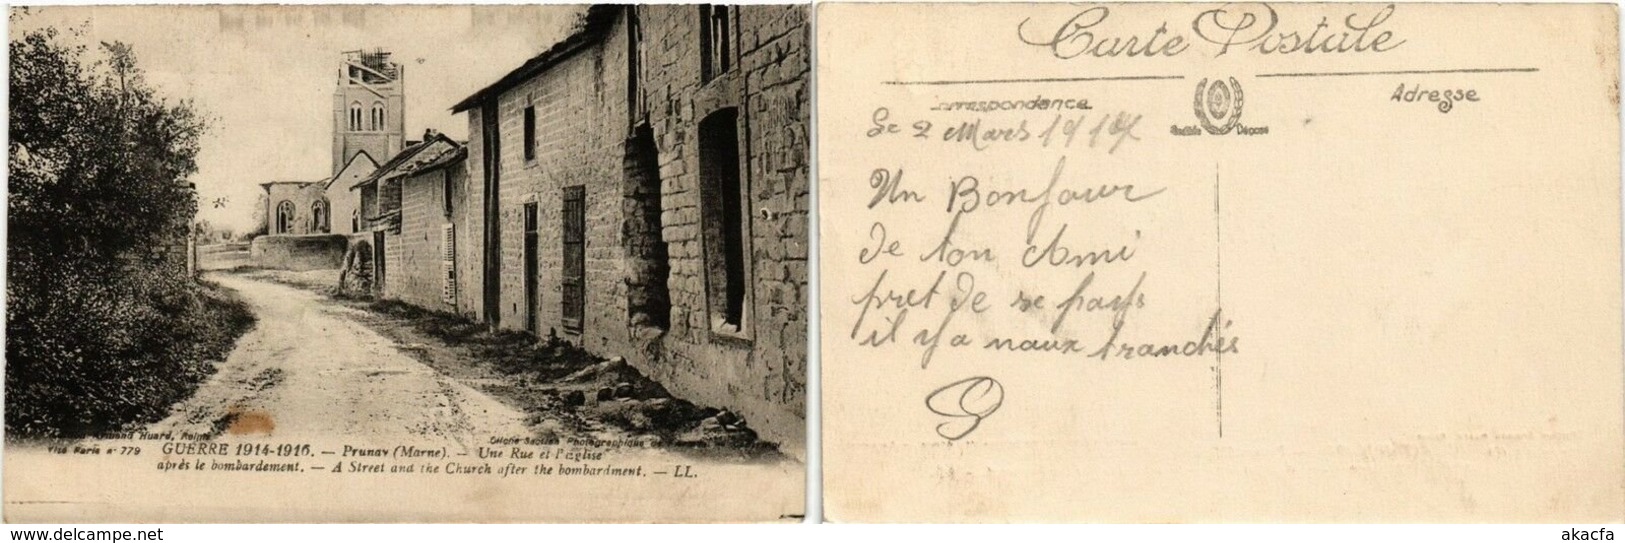 Huard, Reims
Visé Paris n° 779
Cliché Section Photographique de
GUERRE 1914-1916. — Prunay (Marne). — Une Rue et l'église
après le bombardement. — A Street and the Church after the bombardment. — LL.
Carte Postale
Correspondance
Adresse
Modèle Déposé
Le 2 Mars 1917
Un Bonjour
de ton Ami
pret de se pays
il y a naux tranchés
akacfa